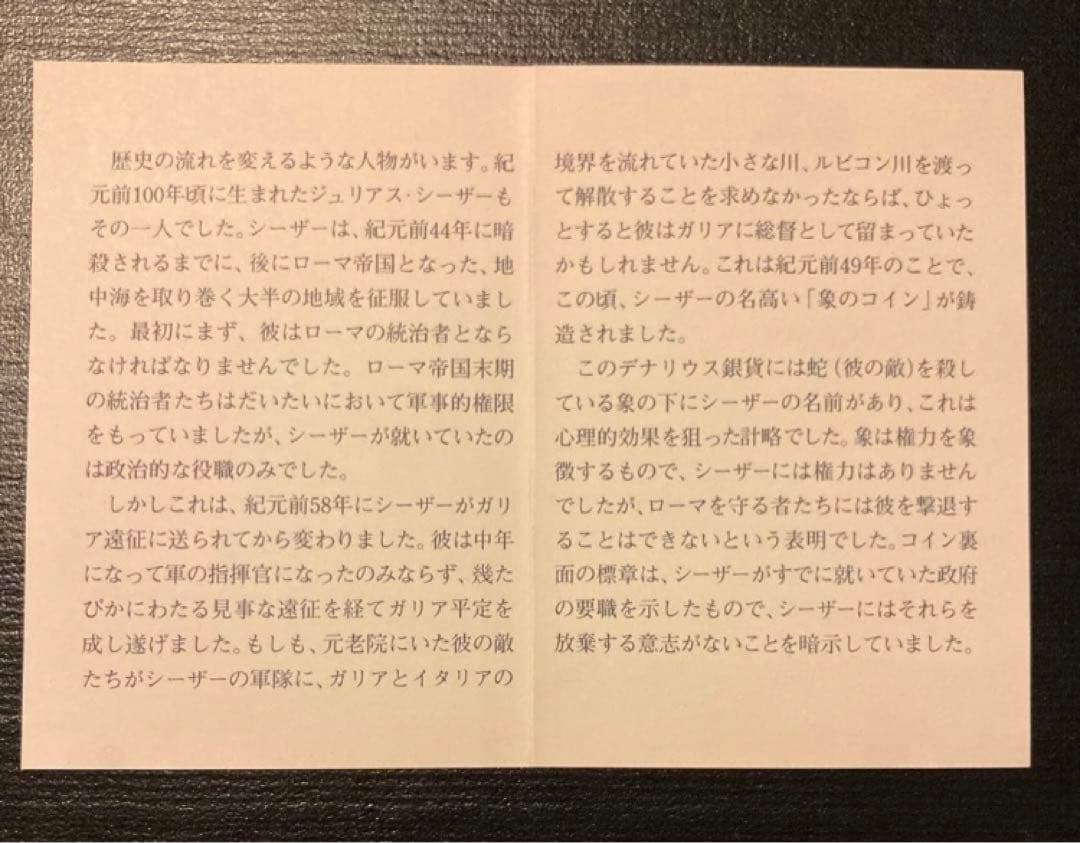 歴史の流れを変えるような人物がいます。紀
元前100年頃に生まれたジュリアス・シーザーも
その一人でした。シーザーは、紀元前44年に暗
殺されるまでに、後にローマ帝国となった、地
中海を取り巻く大半の地域を征服していまし
た。最初にまず、彼はローマの統治者となら
なければなりませんでした。ローマ帝国末期
の統治者たちはだいたいにおいて軍事的権限
をもっていましたが、シーザーが就いていたの
は政治的な役職のみでした。
しかしこれは、紀元前58年にシーザーがガリ
ア遠征に送られてから変わりました。彼は中年
になって軍の指揮官になったのみならず、幾た
びかにわたる見事な遠征を経てガリア平定を
成し遂げました。もしも、元老院にいた彼の敵
たちがシーザーの軍隊に、ガリアとイタリアの
境界を流れていた小さな川、ルビコン川を渡っ
て解散することを求めなかったならば、ひょっ
とすると彼はガリアに総督として留まっていた
かもしれません。これは紀元前49年のことで、
この頃、シーザーの名高い「象のコイン」が鋳
造されました。
このデナリウス銀貨には蛇（彼の敵）を殺し
ている象の下にシーザーの名前があり、これは
心理的効果を狙った計略でした。象は権力を象
徴するもので、シーザーには権力はありません
でしたが、ローマを守る者たちには彼を撃退す
ることはできないという表明でした。コイン裏
面の標章は、シーザーがすでに就いていた政府
の要職を示したもので、シーザーにはそれらを
放棄する意志がないことを暗示していました。